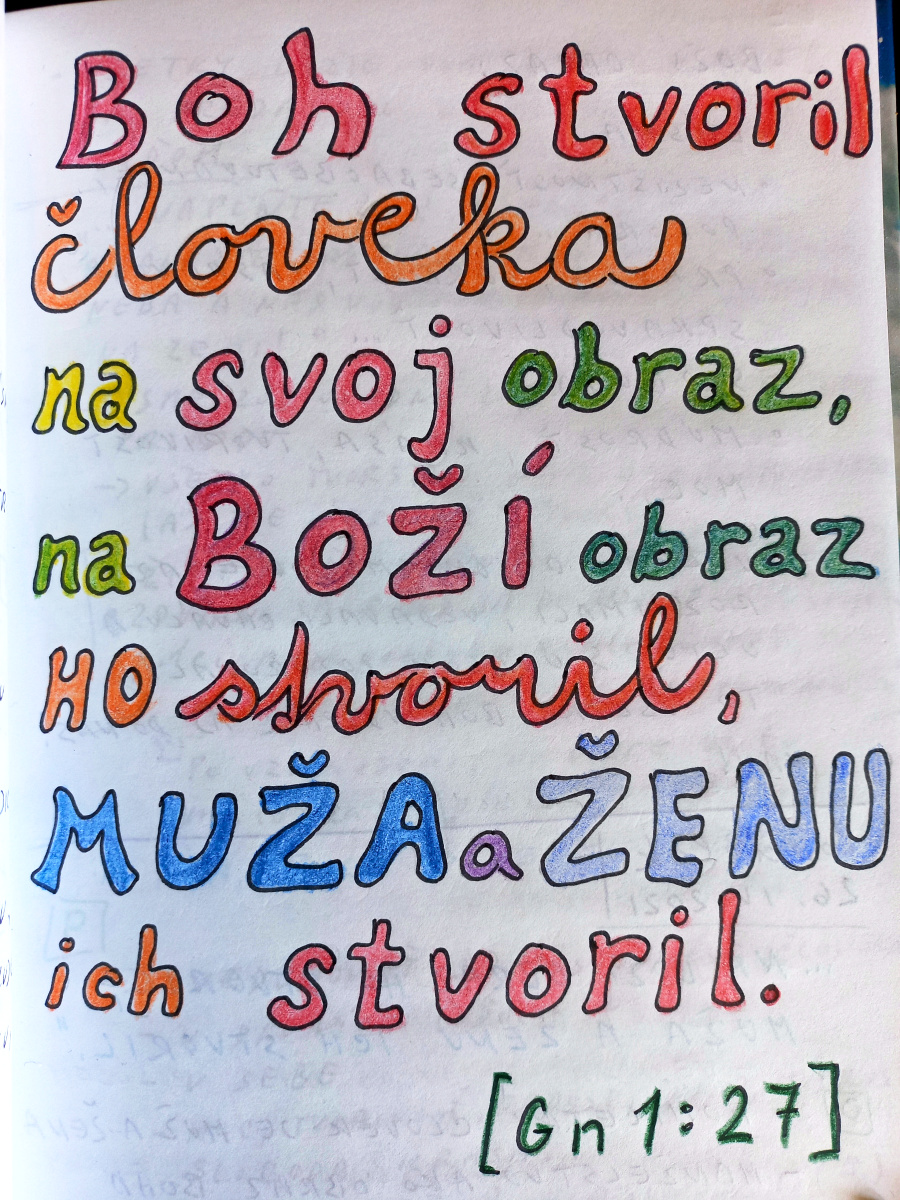 Boh stvoril
človeka
na svoj obraz,
na Boží obraz
HO stvoril,
MUŽA a ŽENU
ich stvoril.
[Gn 1:27]